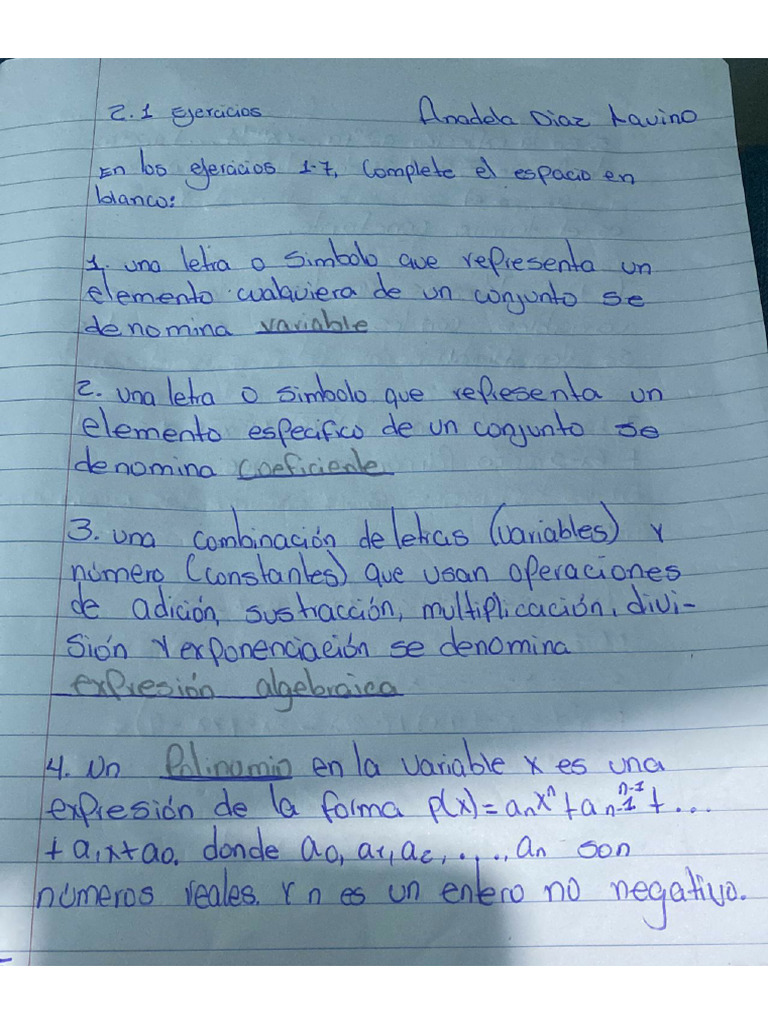 2.1 Ejercicios Anadela Diaz Lavino
En los ejercicios 1-7, Complete el espacio en
blanco:
1. una letra o simbolo que representa un
elemento cualquiera de un conjunto se
denomina variable
2. una letra o simbolo que representa un
elemento especifico de un conjunto se
denomina coeficiente
3. una combinación de letras (variables) y
número (constantes) que usan operaciones
de adición, sustracción, multiplicación, divi-
sión y exponenciación se denomina
expresión algebraica
4. Un Polinomio en la variable x es una
expresión de la forma p(x)=aₙxⁿ+aₙ₋₁ⁿ⁻¹+...
+a₁x+a₀, donde a₀, a₁, a₂, ..., aₙ son
números reales. y n es un entero no negativo.